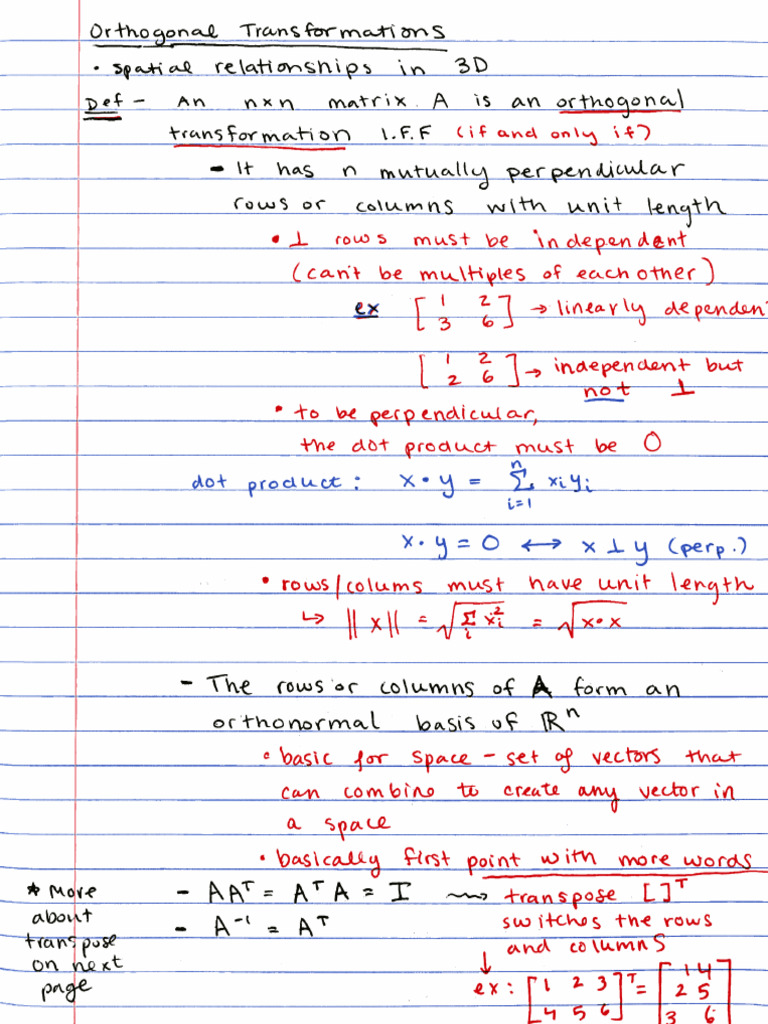 Orthogonal Transformations
• Spatial relationships in 3D
Def - An nxn matrix A is an orthogonal
transformation I.F.F (if and only if)
- It has n mutually perpendicular
rows or columns with unit length
• ⊥ rows must be independent
(can't be multiples of each other)
ex [1 2
3 6] → linearly dependent
[1 2
2 6] → independent but
not ⊥
• to be perpendicular,
the dot product must be 0
dot product: x • y = n∑i=1 xiyi
x • y = 0 ↔ x ⊥ y (perp.)
• rows/colums must have unit length
↳ ||x|| = √∑i xi² = √x•x
- The rows or columns of A form an
orthonormal basis of ℝⁿ
• basic for space - set of vectors that
can combine to create any vector in
a space
• basically first point with more words
* More
about
transpose
on next
page
- AAᵀ = AᵀA = I ⟿ transpose []ᵀ
- A⁻¹ = Aᵀ
switches the rows
and columns
↓
ex: [1 2 3
4 5 6]ᵀ = [1 4
2 5
3 6]